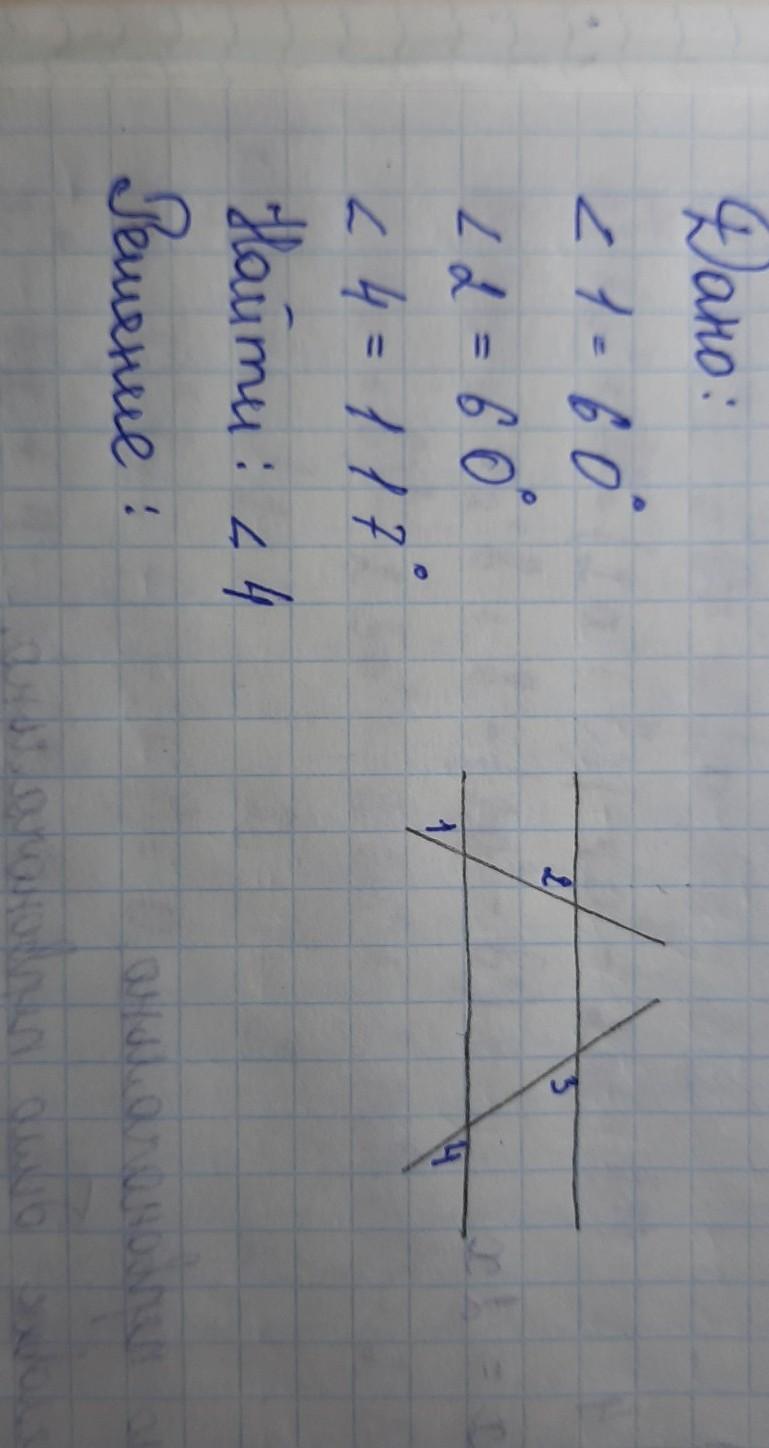 Дано:
< 1 = 60°
< 2 = 60°
< 4 = 117°
Найти: < 4
Решение:
2
3
1
4